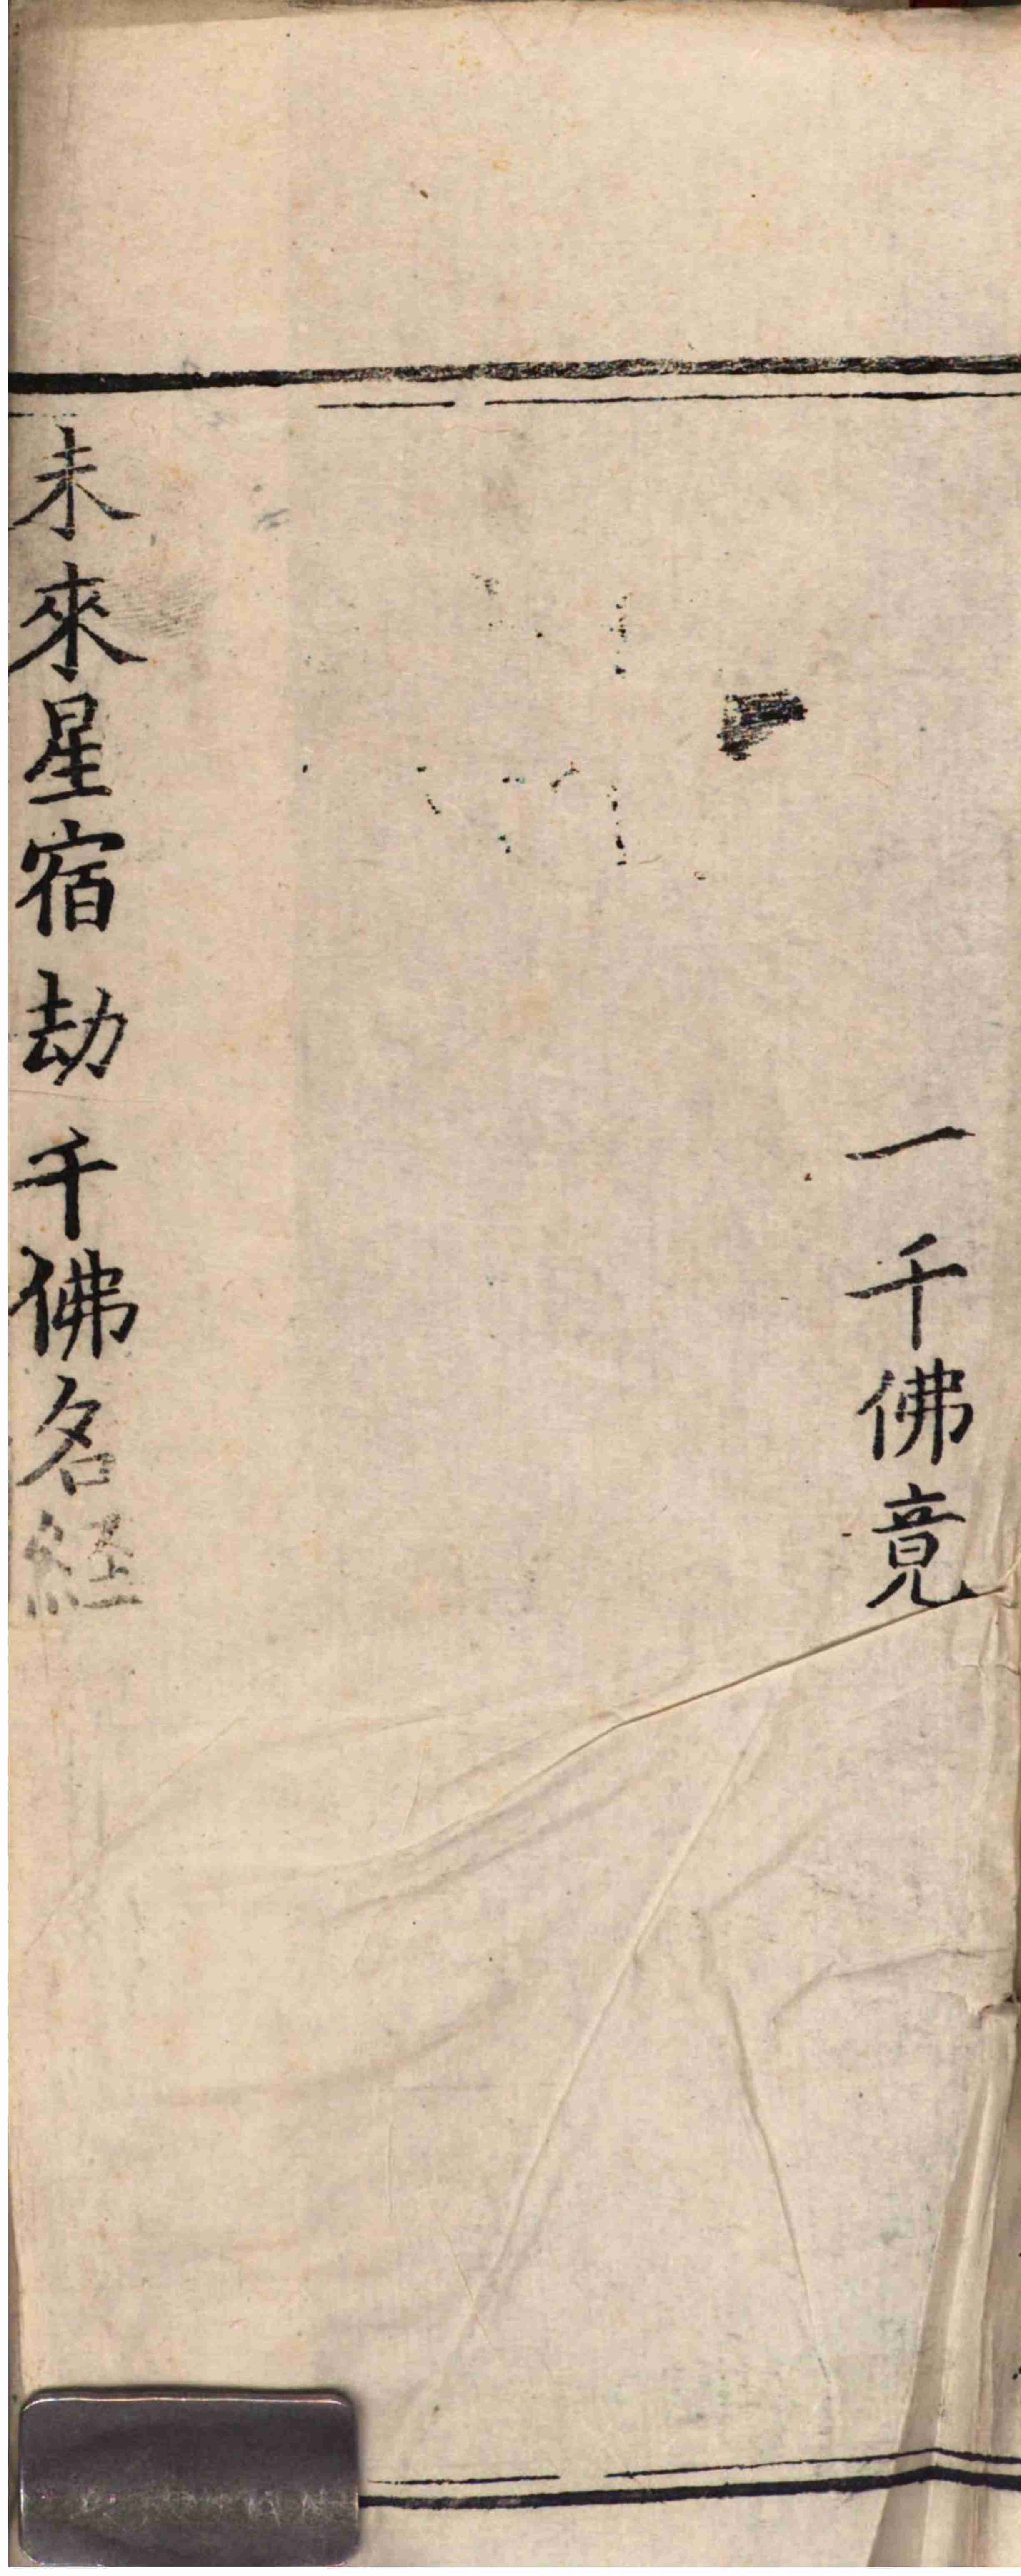 一千佛竟
未來星宿劫千佛名経